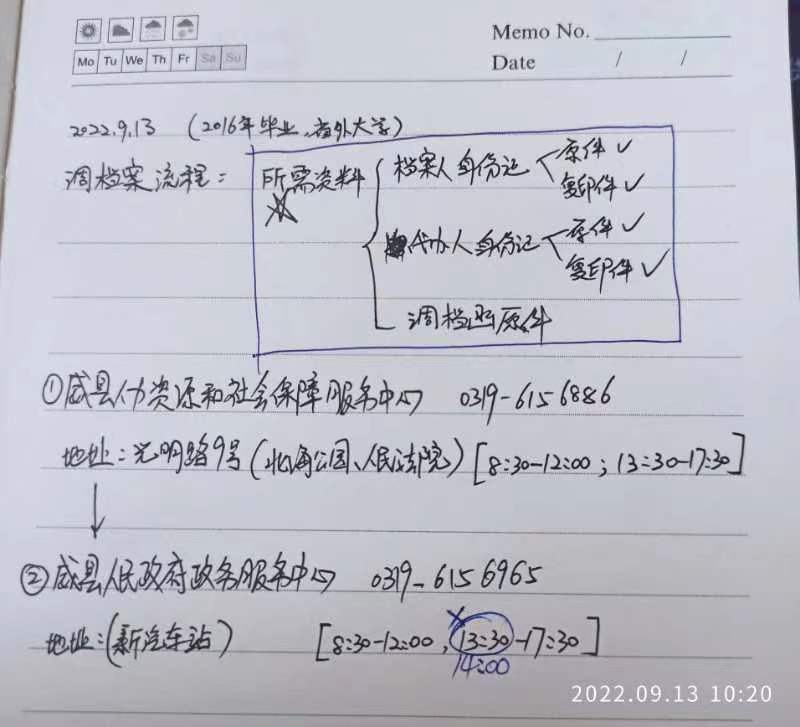 Memo No.
Mo Tu We Th Fr Sa Su
Date / /
2022.9.13 (2016年毕业,省外大学)
调档案流程: 所需资料
档案人身份记 原件 ✓
复印件 ✓
代办人身份记 原件 ✓
复印件 ✓
调档函原件
①威县人力资源和社会保障服务中心 0319-6156886
地址:光明路9号(北海公园、人民法院)[8:30-12:00;13:30-17:30]
②威县人民政府政务服务中心 0319-6156965
地址:(新汽车站) [8:30-12:00,13:30-17:30]
14:00
2022.09.13 10:20